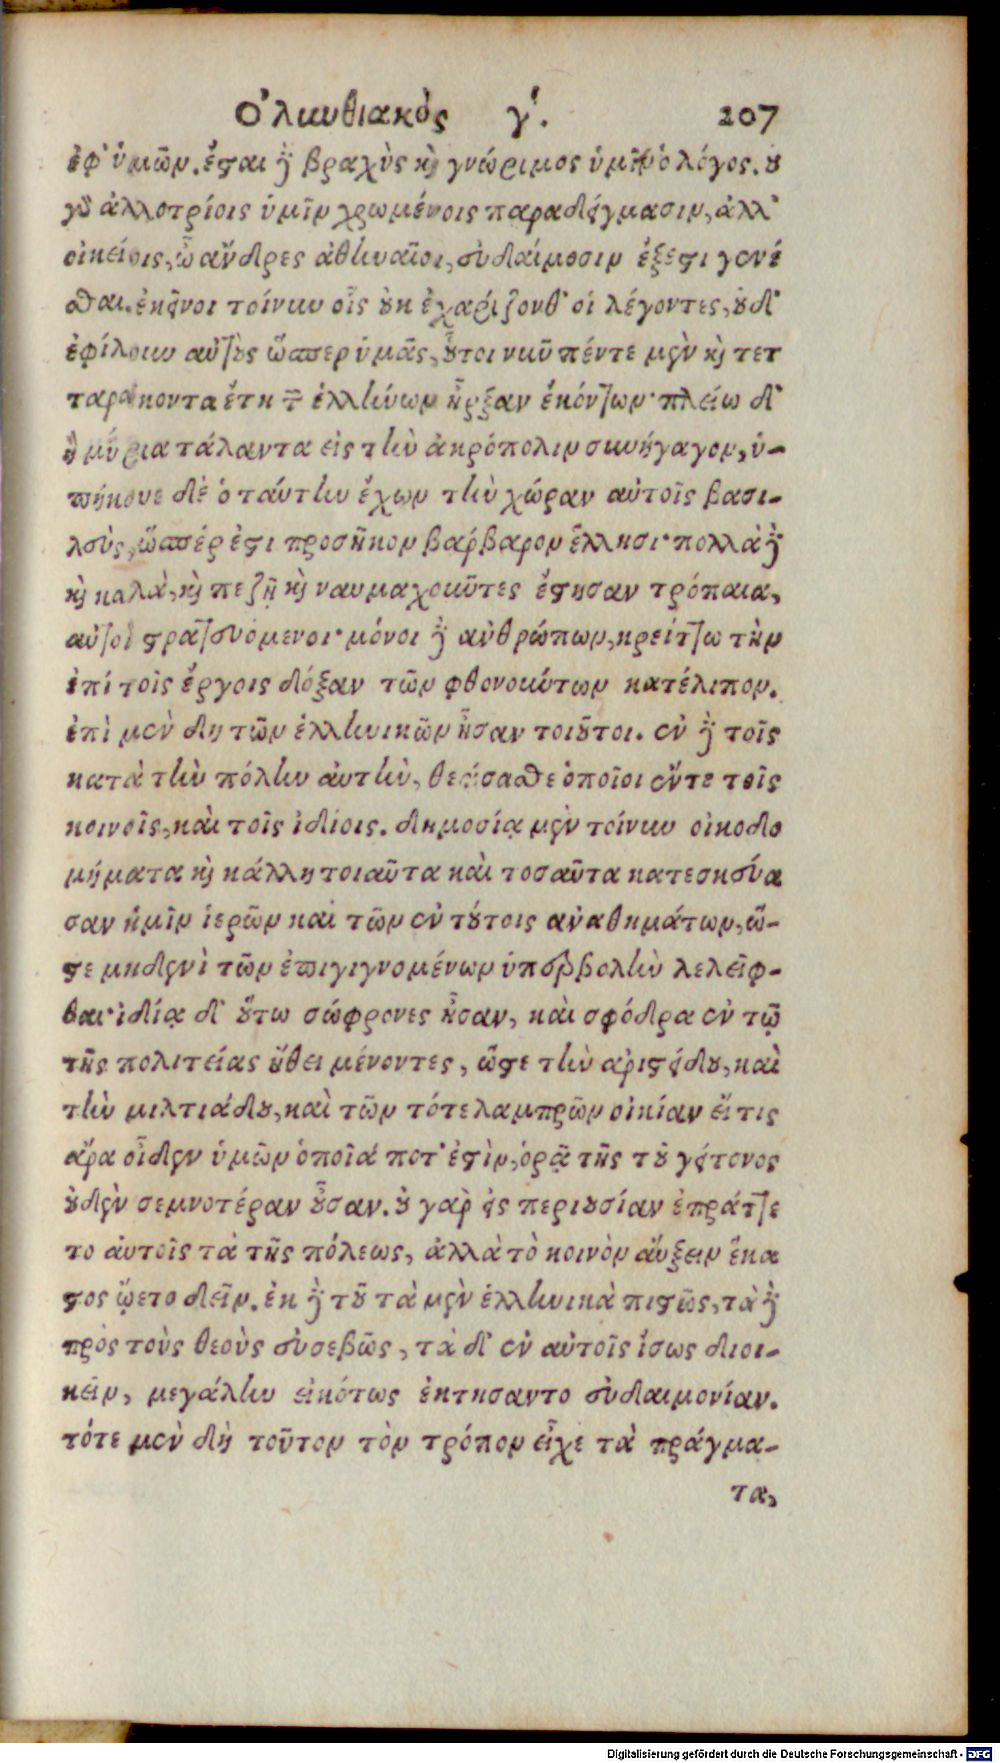 Ὀλυνθιακὸς γ´. 207
ἐφ' ὑμῶν. ἔσται δὲ βραχὺς καὶ γνώριμος ὑμῖν ὁ λόγος. οὐ
γὰρ ἀλλοτρίοις ὑμῖν χρωμένοις παραδείγμασιν, ἀλλ'
οἰκείοις, ὦ ἄνδρες ἀθηναῖοι, εὐδαίμοσιν ἔξεστι γενέ
σθαι. ἐκεῖνοι τοίνυν οἷς οὐκ ἐχαρίζονθ' οἱ λέγοντες, οὐδ'
ἐφίλουν αὐτοὺς ὥσπερ ὑμᾶς, οὗτοι νυῦ πέντε μὲν καὶ τετ
ταράκοντα ἔτη τῶν ἑλλήνων ἦρξαν ἑκόντων· πλείω δ'
ἢ μύρια τάλαντα εἰς τὴν ἀκρόπολιν συνήγαγον, ὑ-
πήκουε δὲ ὁ ταύτην ἔχων τὴν χώραν αὐτοῖς βασι-
λεὺς, ὥσπέρ ἐστι προσῆκον βάρβαρον ἕλλησι· πολλὰ δὲ
καὶ καλὰ, καὶ πεζῇ καὶ ναυμαχοῦντες ἔστησαν τρόπαια,
αὐτοὶ στρατευόμενοι· μόνοι δὲ ἀνθρώπων, κρείττω τὴν
ἐπὶ τοῖς ἔργοις δόξαν τῶν φθονούντων κατέλιπον.
ἐπὶ μὲν δὴ τῶν ἑλληνικῶν ἦσαν τοιοῦτοι. ἐν δὲ τοῖς
κατὰ τὴν πόλιν αὐτὴν, θεάσασθε ὁποῖοι ἔν τε τοῖς
κοινοῖς, καὶ τοῖς ἰδίοις. δημοσίᾳ μὲν τοίνυν οἰκοδο
μήματα καὶ κάλλη τοιαῦτα καὶ τοσαῦτα κατεσκεύα
σαν ἡμῖν ἱερῶν καὶ τῶν ἐν τούτοις ἀναθημάτων, ὥ-
στε μηδενὶ τῶν ἐπιγιγνομένων ὑπερβολὴν λελεῖφ-
θαι· ἰδίᾳ δ' οὕτω σώφρονες ἦσαν, καὶ σφόδρα ἐν τῷ
τῆς πολιτείας ἤθει μένοντες, ὥστε τὴν ἀριστείδου, καὶ
τὴν μιλτιάδου, καὶ τῶν τότε λαμπρῶν οἰκίαν εἴ τις
ἄρα οἶδεν ὑμῶν ὁποῖά ποτ' ἐστὶν, ὁρᾷ τῆς τοῦ γείτονος
οὐδὲν σεμνοτέραν οὖσαν. οὐ γὰρ εἰς περιουσίαν ἐπράττε
το αὐτοῖς τὰ τῆς πόλεως, ἀλλὰ τὸ κοινὸν αὔξειν ἕκα
στος ᾤετο δεῖν. ἐκ δὲ τοῦ τὰ μὲν ἑλληνικὰ πιστῶς, τὰ δὲ
πρὸς τοὺς θεοὺς εὐσεβῶς, τὰ δ' ἐν αὐτοῖς ἴσως διοι-
κεῖν, μεγάλην εἰκότως ἐκτήσαντο εὐδαιμονίαν.
τότε μὲν δὴ τοῦτον τὸν τρόπον εἶχε τὰ πράγμα-
τα,
Digitalisierung gefördert durch die Deutsche Forschungsgemeinschaft - DFG